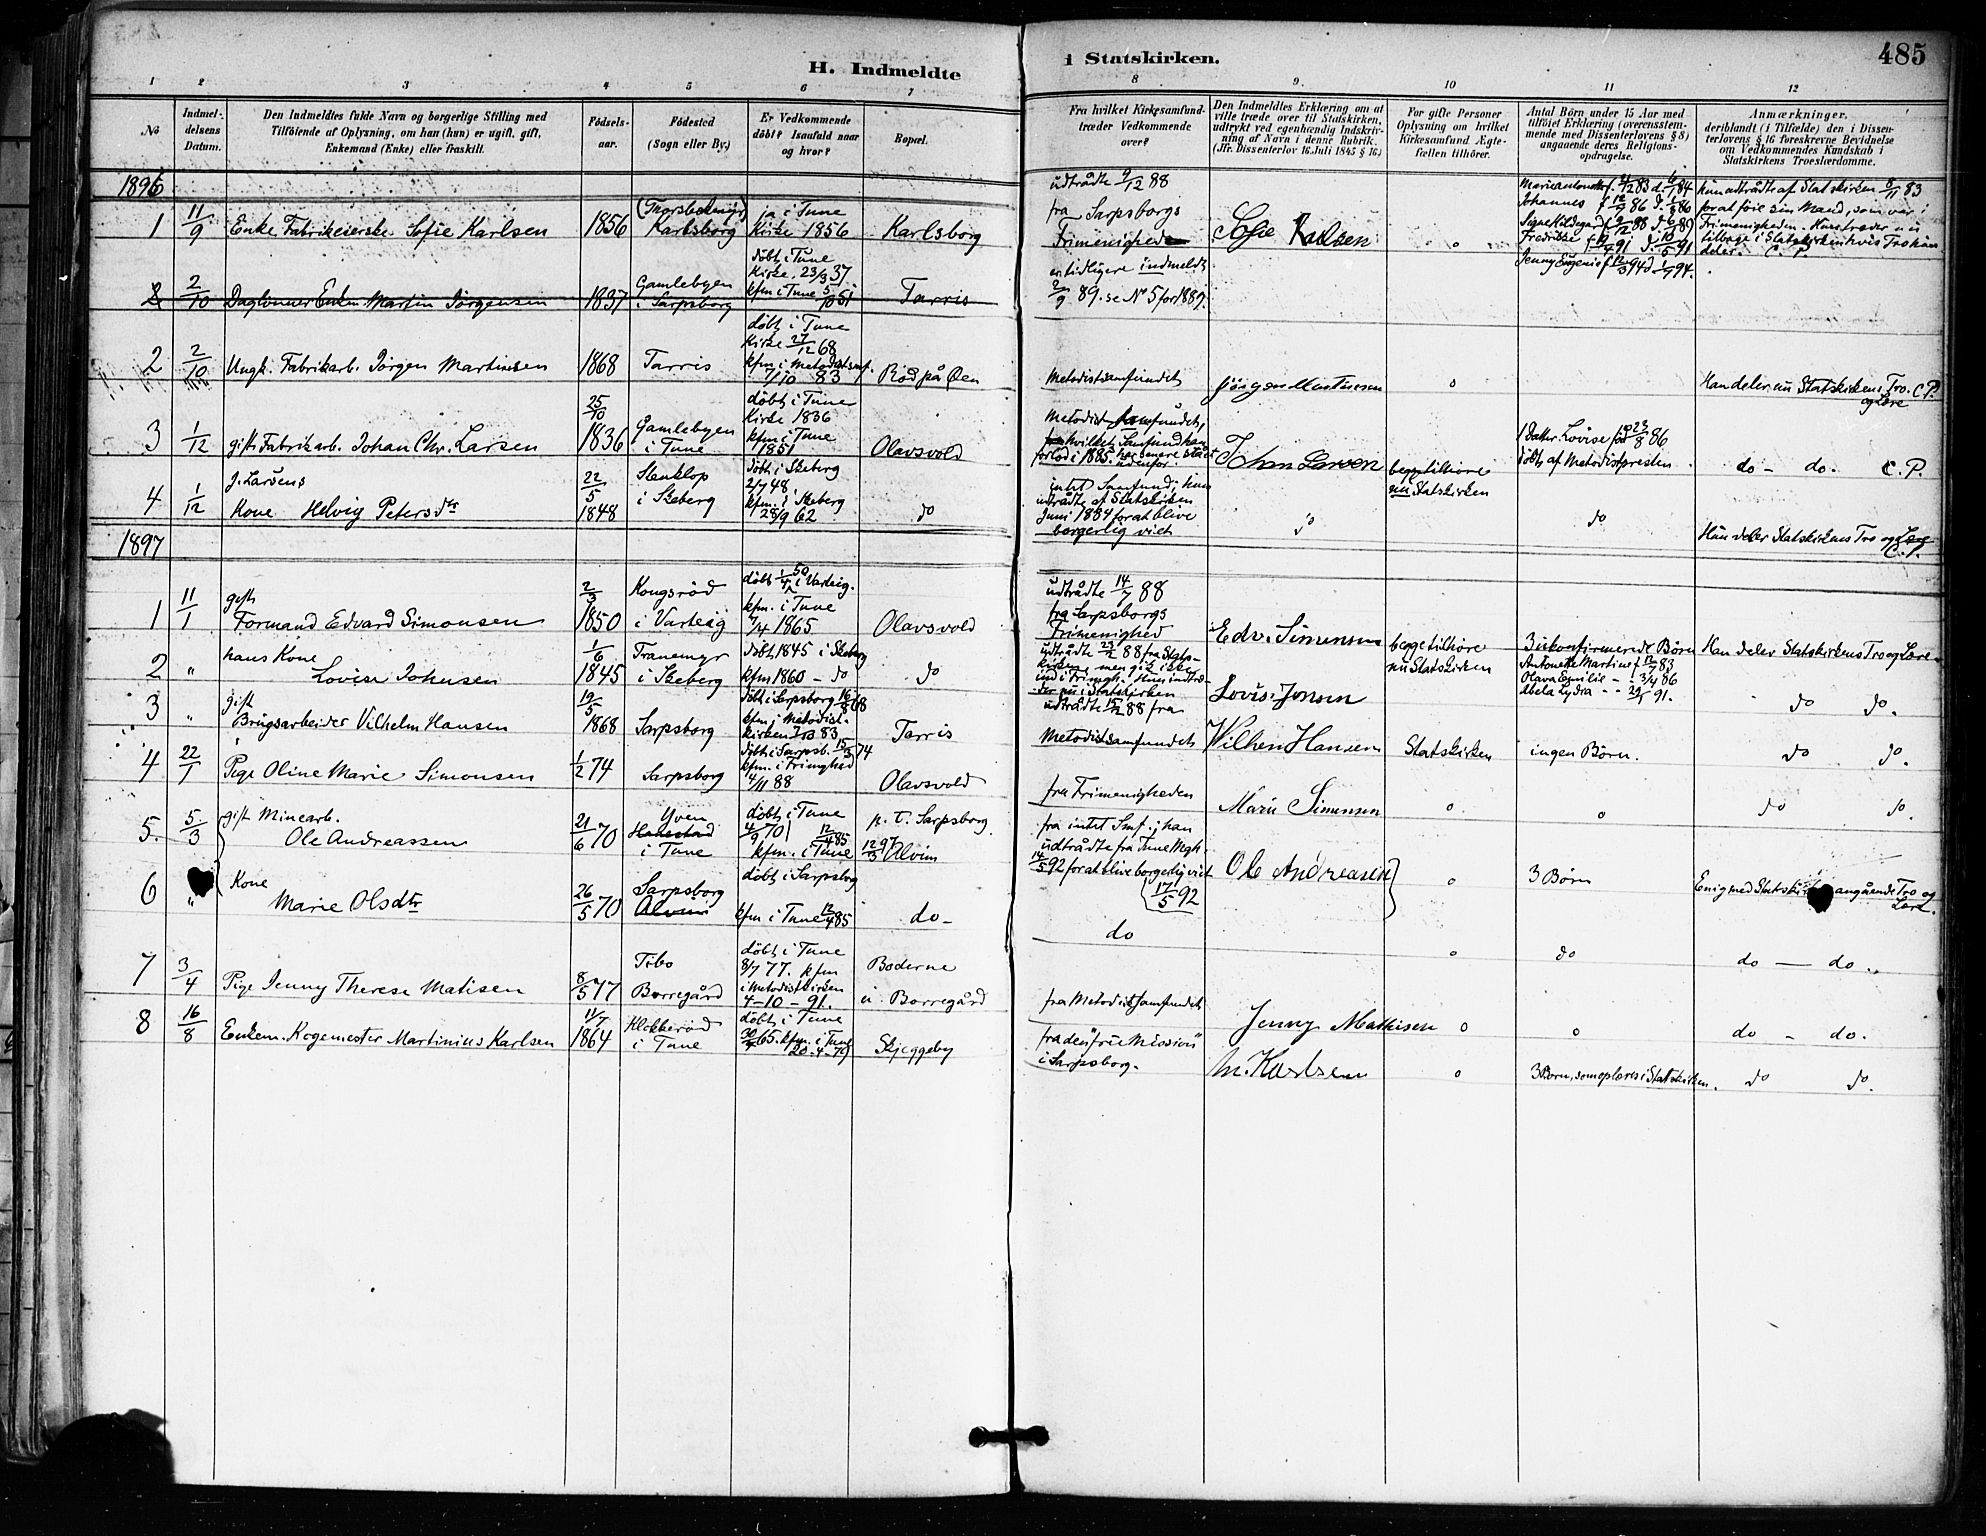 H. Indmeldte
i Statskirken.
485
1
2
3
4
5
6
7
8
9
10
11
12
No
Indmel-
delsens
Datum.
Den Indmeldtes fulde Navn og borgerlige Stilling med
Tilföiende af Oplysning, om han (hun) er ugift, gift,
Enkemand (Enke) eller fraskilt.
Födsels-
aar.
Födested
(Sogn eller By.)
Er Vedkommende
döbt? Isaafald naar
og hvor?
Bopæl.
Fra hvilket Kirkesamfund-
træder Vedkommende
over?
Den Indmeldtes Erklæring om at
ville træde over til Statskirken,
udtrykt ved egenhændig Indskriv-
ning af Navn i denne Rubrik.
(Jfr. Dissenterlov 16 Juli 1845 § 16.)
For gifte Personer
Oplysning om hvilket
Kirkesamfund Ægte-
fællen tilhörer.
Antal Börn under 15 Aar med
tilföiet Erklæring (overensstem-
mende med Dissenterlovens § 8)
angaaende deres Religions-
opdragelse.
Anmærkninger,
deriblandt (i Tilfælde) den i Dissen-
terlovens § 16 foreskrevne Bevidnelse
om Vedkommendes Kundskab i
Statskirkens Troeslærdomme.
1896
1 11/9 Enke Fabrikeierske Sofie Karlsen 1856 Karlsborg
ja i Tune
Kirke 1856
Karlsborg
udtrådte 9/12 88
fra Sarpsborgs
Frimenighed
Sofie Karlsen
o
Johannes
Fredrikke
Hun udtrådte af Statskirken 8/11 83
for at föie sin Mand, som var i
Frimenigheden. Hun træder nu
tilbage i Statskirken hvis Tro hun
deler. C. P.
2 2/10 Daglönner Enkem Martin Jörgensen 1837
Gamlebyen
i Sarpsborg
döbt i Tune
Kirke 23/3 37
kfm i Tune 5/10 51
Tarris
er tidligere indmeldt
2/9 89. se No 5 for 1889.
2 2/10 Ungk. Fabrikarb. Jörgen Martinsen 1868 Tarris
döbt i Tune
Kirke 27/12 68
kfm i Metodistsmf.
7/10 83
Röd på Öen
Metodistsamfundet
Jörgen Martinsen
o
Han deler nu Statskirkens Tro C.P.
og Lære
3 1/12 gift Fabrikarb. Johan Chr. Larsen
25/10
1836
Gamlebyen
i Tune
döbt i Tune
Kirke 1836
kfm i Tune
1851
Olavsvold
Metodist samfundet,
hvilket Samfund han
forlod i 1885. har senere stået
udenfor.
Johan Larsen
begge tilhöre
nu Statskirken
1 Datter Lovise föd 23/8 86
döbt af Metodistpresten
do - do. C. P.
4 1/12
J. Larsens
Kone Helvig Petersdtr
22/5
1848
Stenklop
i Skeberg
döbt i Skeberg
2/7 48
kfm. i Skeberg
28/9 62
do
intet Samfund; hun
udtrådte af Statskirken
Juni 1884 for at blive
borgerlig viet
do
do
Hun deler Statskirkens Tro og Lære
C. P.
1897
1 11/1
gift
Formand Edvard Simonsen
2/3
1850
Kongsröd
i Varteig
döbt 1/4 50 i Varteig.
kfm. i Tune
7/4 1865
Olavsvold
udtrådte 14/7 88
fra Sarpsborgs
Frimenighed
Edv. Simensen
begge tilhöre
nu Statskirken
3 ukonfirmerede Börn
Antonette Martine
Olava Emilie - - 3/4 86
Abela Lydia
Han deler Statskirkens Tro og Lære
2 "
hans Kone
Lovise Johnsen
1/6
1845
Tranemyr
i Skeberg
döbt 1845 i Skeberg
kfm 1860 - do
do
udtrådte 23/2 88 fra Stats-
kirken, men gik ikke
ind i Frimgh. Hun indtræ-
der nu i Statskirken
Lovise Jonsen
do do.
3 "
gift
Brugsarbeider Vilhelm Hansen
19/5
1868
Sarpsborg
döbt i Sarpsborg 16/8 68
kfm i Metodist-
kirken 83
Tarris
udtrådte 15/2 88 fra
Metodistsamfundet
Wilhen Hansen
Statskirken
ingen Börn.
do do.
4 22/1 Pige Oline Marie Simonsen
1/2 74
Sarpsborg
döbt i Sarpsb. 15/3 74
kfm. i Frimghed
4/11 88
Olavsvold
fra Frimenigheden
Marie Simensen
o
o
do do.
5. 5/3
gift Minearb.
Ole Andreassen
21/6 70
Yven
Hafnestad
i Tune
döbt i Tune
4/9 70
kfm. i Tune 12/4 85
p. t. Sarpsborg.
12/3 97 Alvim
fra intet Smf.; han
udtrådte fra Tune Mgh.
14/5 92 for at blive borgerlig viet
17/5 92
Ole Andreasen
o
3 Börn
Enig med Statskirken angående Tro og
Lære.
6 "
Kone
Marie Olsdtr
26/5 70
Sarpsborg
Alvim
döbt i Sarpsbg
kfm i Tune 12/4 85
do -
do
o
do
do - do.
7 3/4 Pige Jenny Therese Matisen
8/5 77
Tibo
Borregård
döbt i Tune
8/7 77. kfm
i Metodistkirken
4-10-91.
Boderne
u. Borregård
fra Metodistsamfundet
Jenny Mathisen
o
o
do - do.
8 16/8 Enkem. Kogemester Martinius Karlsen
11/7
1864
Klokkeröd
i Tune
döbt i Tune
65. kfm. i Tune
20-4-79
Skjeggeby
fra den "frie Mission"
i Sarpsborg.
M. Karlsen
o
3 Börn, som oplæres i Statskirken.
do do.